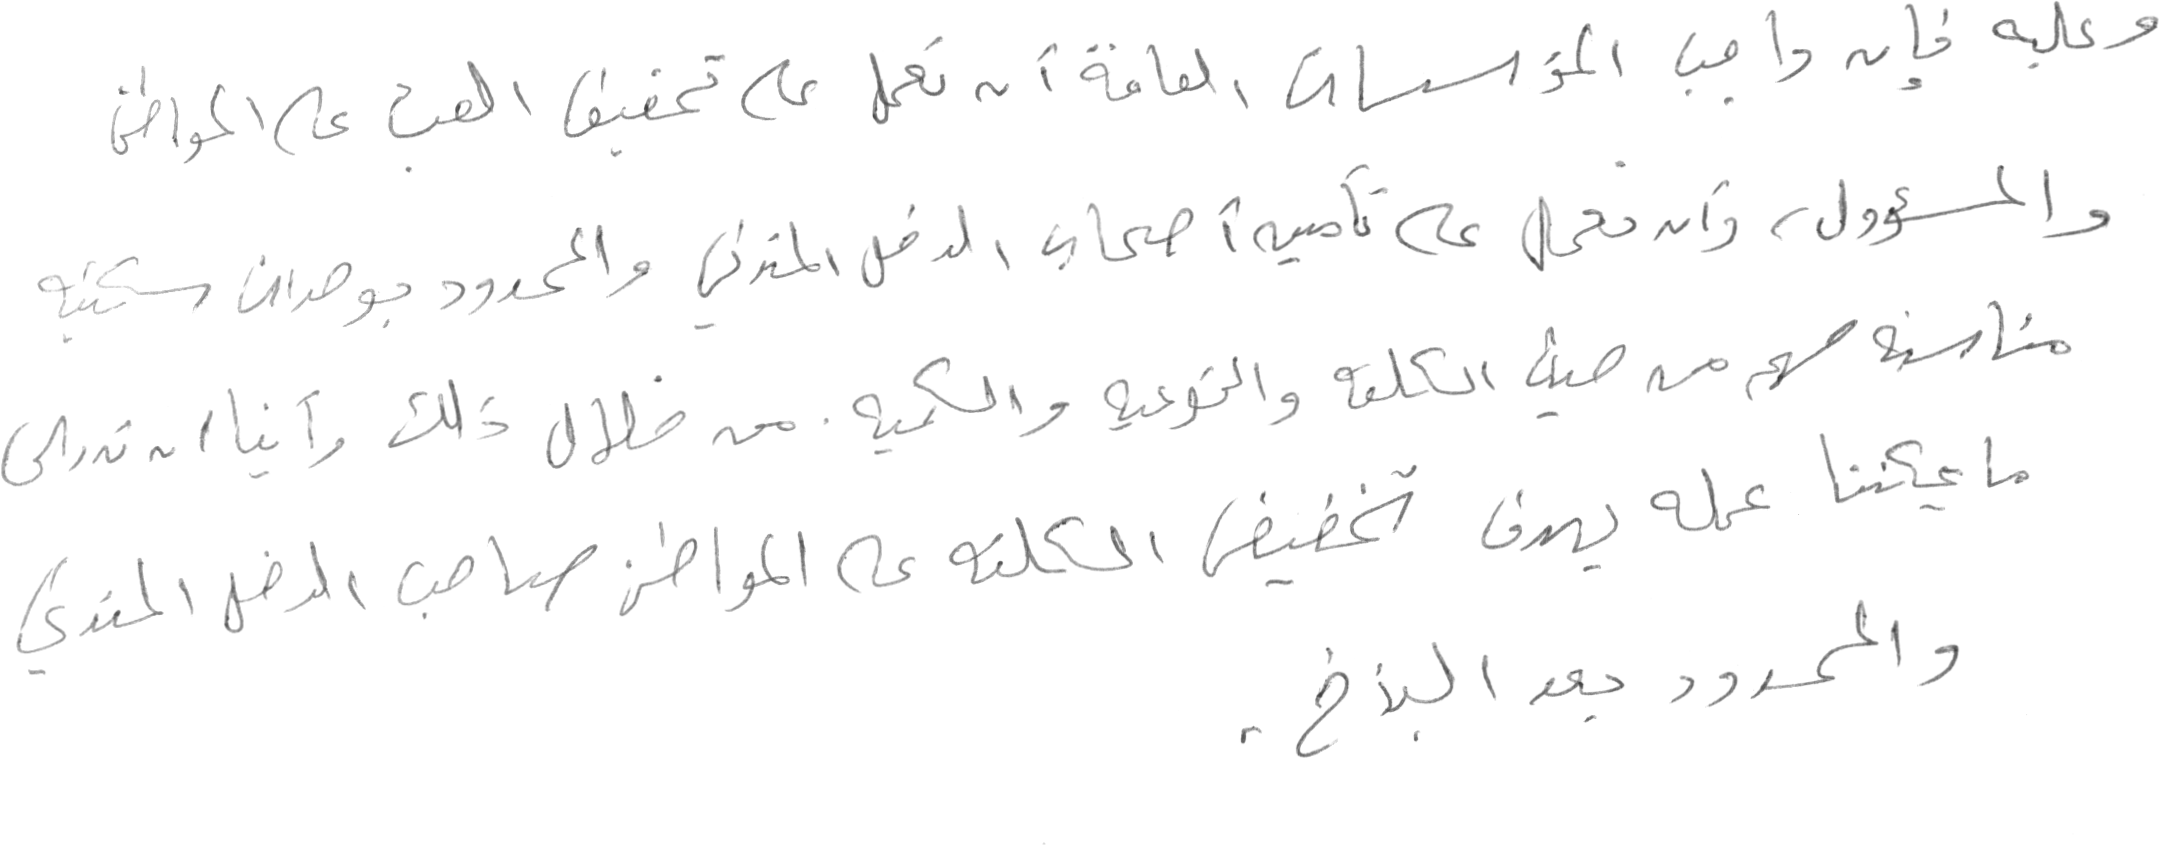 وعليه فإن واجب المؤسسات العامة أن تعمل على تخفيف العبء على المواطن
والمسؤول، وأن تعمل على تأمين أصحاب الدخل المتدني والمحدود بوحدات سكنية
مناسبة لهم من حيث الكلفة والنوعية والكمية. من خلال ذلك رأينا أن ندرس
ما يمكننا عمله بهدف تخفيض الكلفة على المواطن صاحب الدخل المتدني
والمحدود بعد البذخ.